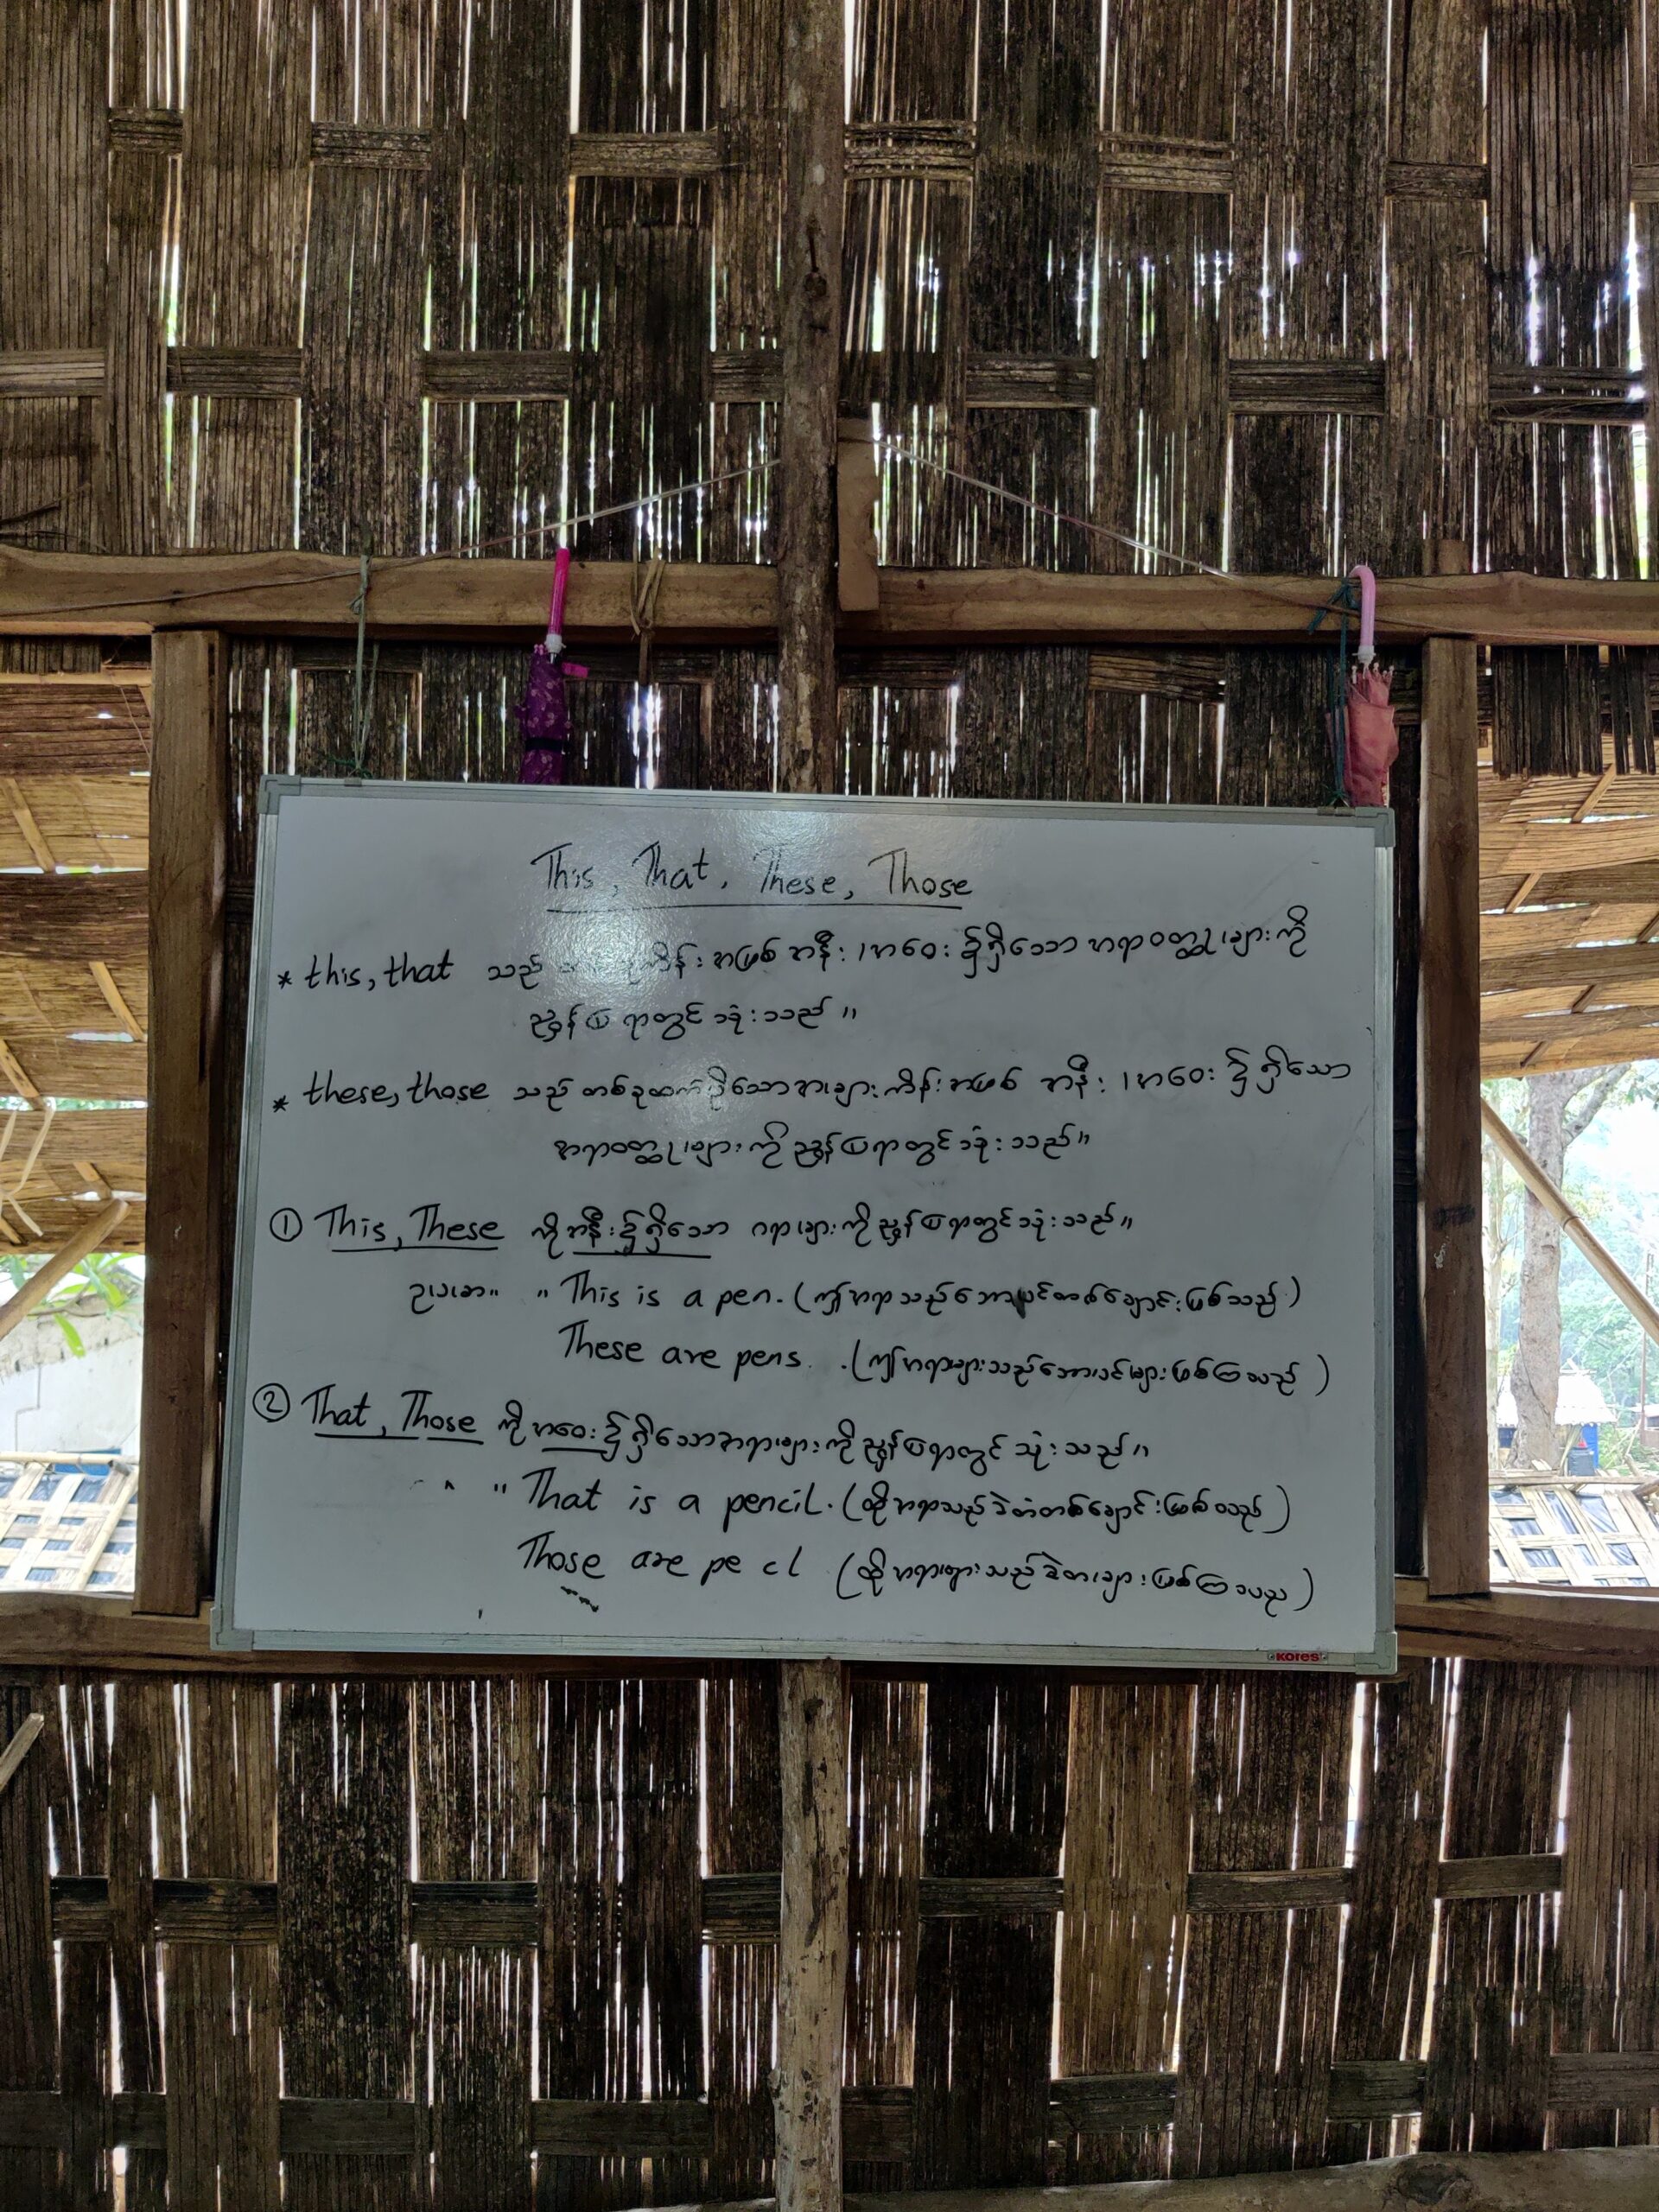 This, That, These, Those
* this, that သည် ကိန်းအဖြစ် အနီး ၊ အဝေး ၌ရှိသော အရာဝတ္ထုများကို
ညွှန်ပြရာတွင် သုံးသည် ။
* these, those သည် တစ်ခုထက်ပိုသောအများကိန်းအဖြစ် အနီး ၊ အဝေး ၌ရှိသော
အရာဝတ္ထုများကို ညွှန်ပြရာတွင် သုံးသည်။
① This, These ကို အနီး၌ရှိသော အရာများကို ညွှန်ပြရာတွင် သုံးသည်။
ဥပမာ။ " This is a pen. (ဤအရာသည်ဘောပင်တစ်ချောင်းဖြစ်သည်)
These are pens. (ဤအရာများသည်ဘောပင်များဖြစ်ကြသည်)
② That, Those ကို အဝေး၌ရှိသောအရာများကို ညွှန်ပြရာတွင် သုံးသည်။
" That is a pencil. (ထိုအရာသည်ခဲတံတစ်ချောင်းဖြစ်သည်)
Those are pe cl (ထိုအရာများသည်ခဲတံများဖြစ်ကြသည်)
Kores